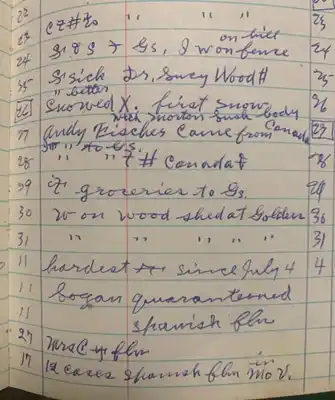 23 " " " 23
24 G & S & Gs, I w on fence on hill 24
25 G sick Dr. Lucy Wood H 25
26 " better Snowed X. first snow 26
27 Andy Fischer came from Canada with Morton Bush body 27
28 " " " to Gs. & H Canada & 28
29 groceries to Gs. 29
30 w on wood shed at Golden 30
31 " " " " 31
11 hardest since July 4 4
11 began quaranteened
11 spanish flu
27 Mrs C flu
17 12 cases spanish flu in Mo V.